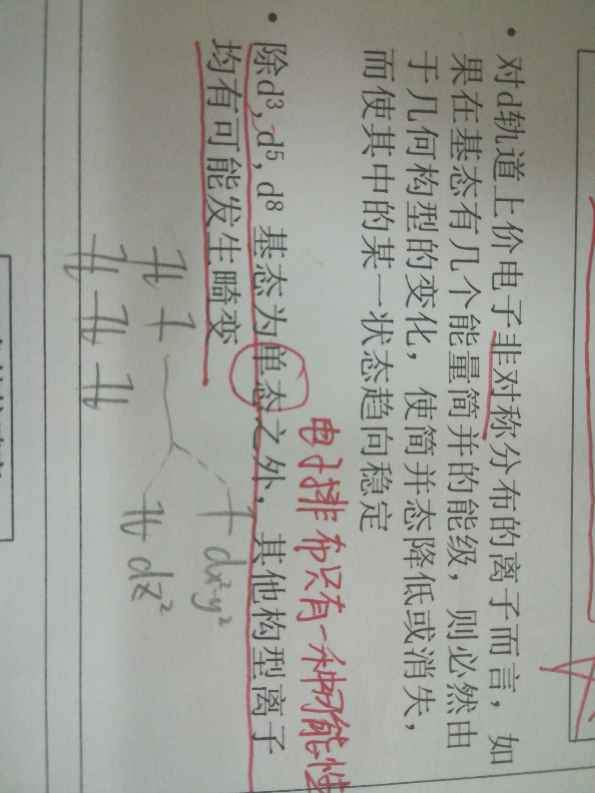 • 对d轨道上价电子非对称分布的离子而言，如
果在基态有几个能量简并的能级，则必然由
于几何构型的变化，使简并态降低或消失，
而使其中的某一状态趋向稳定
电子排布只有一种可能性
• 除d³,d⁵,d⁸基态为单态之外，其他构型离子
均有可能发生畸变
dx²-y²
dz²